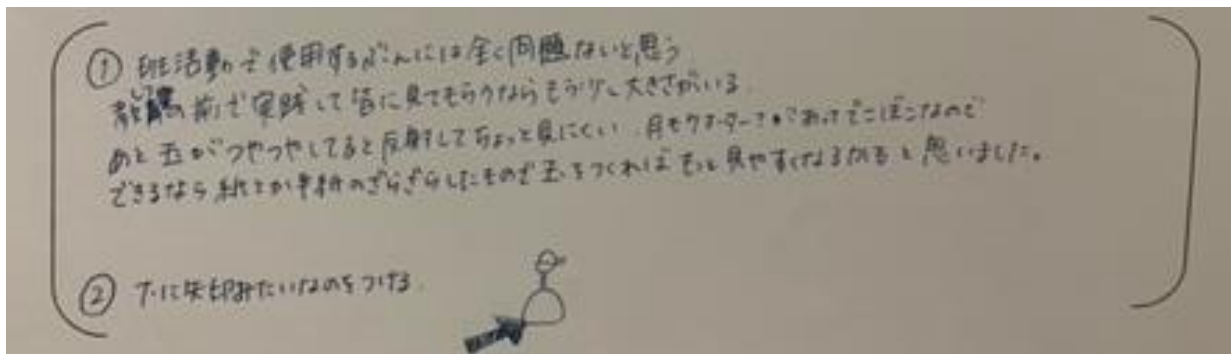 ① 班活動で使用するぶんには全く問題ないと思う
前で実践して皆に見てもらうならもう少し大きさがいる
あと玉がつやつやしてると反射してちょっと見にくい 月もクレーターがあってでこぼこなので
できるなら紙とか半紙のざらざらしたもので玉をつくればもっと見やすくなるかなと思いました。
② 下に矢印みたいなのをつける